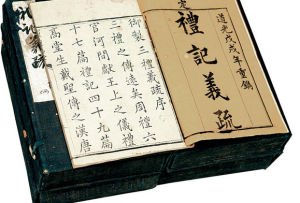 道光戊戌年重鐫
定
禮記義疏
御製三禮義疏序
三禮之傳遠矣周禮六
官河間獻王上之儀禮
十七篇禮記四十九篇
高堂生戴聖傳之漢唐
記義疏